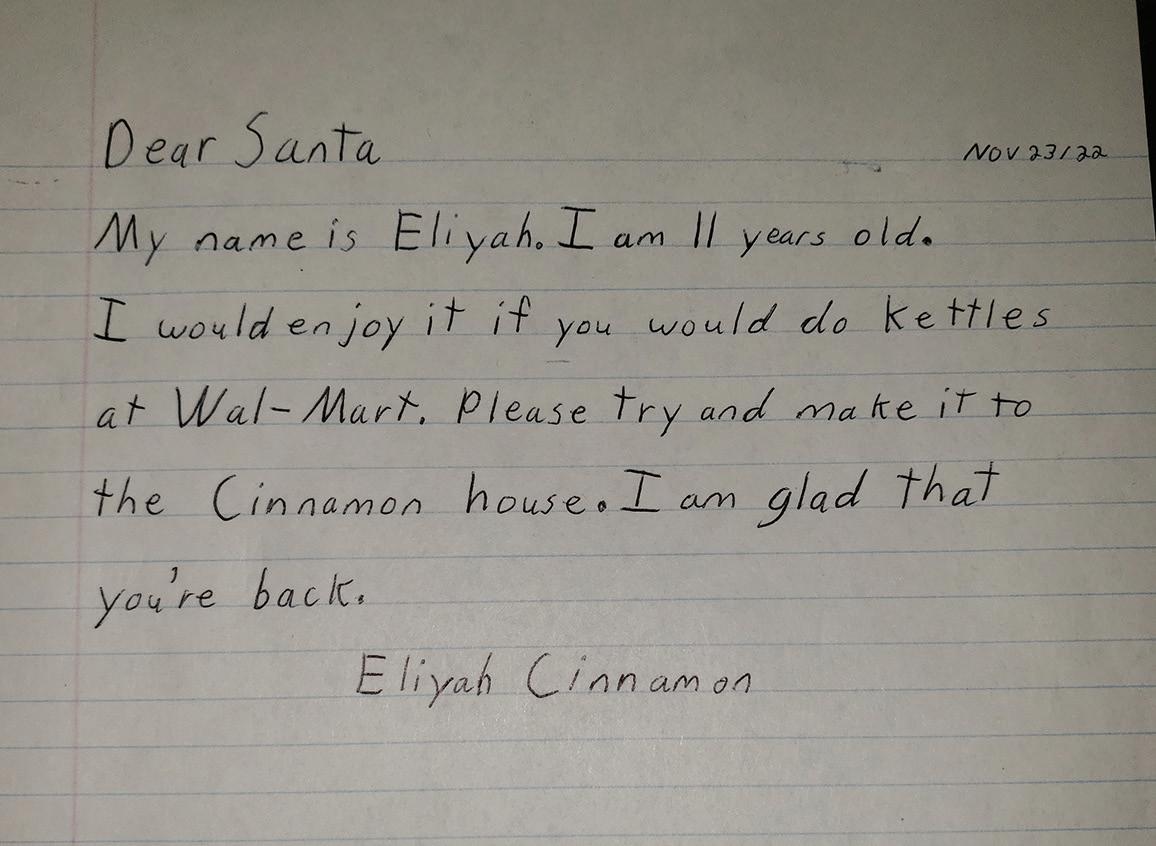 Dear Santa
NOV 23/22
My name is Eliyah. I am 11 years old.
I would enjoy it if you would do kettles
at Wal-Mart. Please try and make it to
the Cinnamon house. I am glad that
you're back.
Eliyah Cinnamon